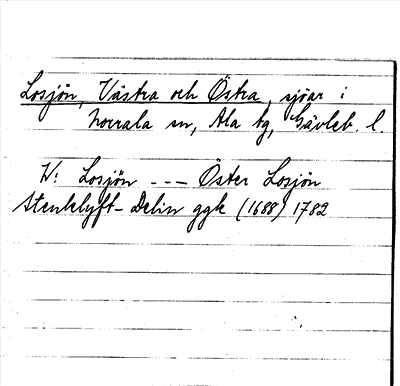 Losjön, Västra och Östra, sjöar i
Norrala sn, Ala tg, Gävleb. l.
W: Losjön - - - Öster Losjön
Stenklyft - Delin ggk (1688) 1782